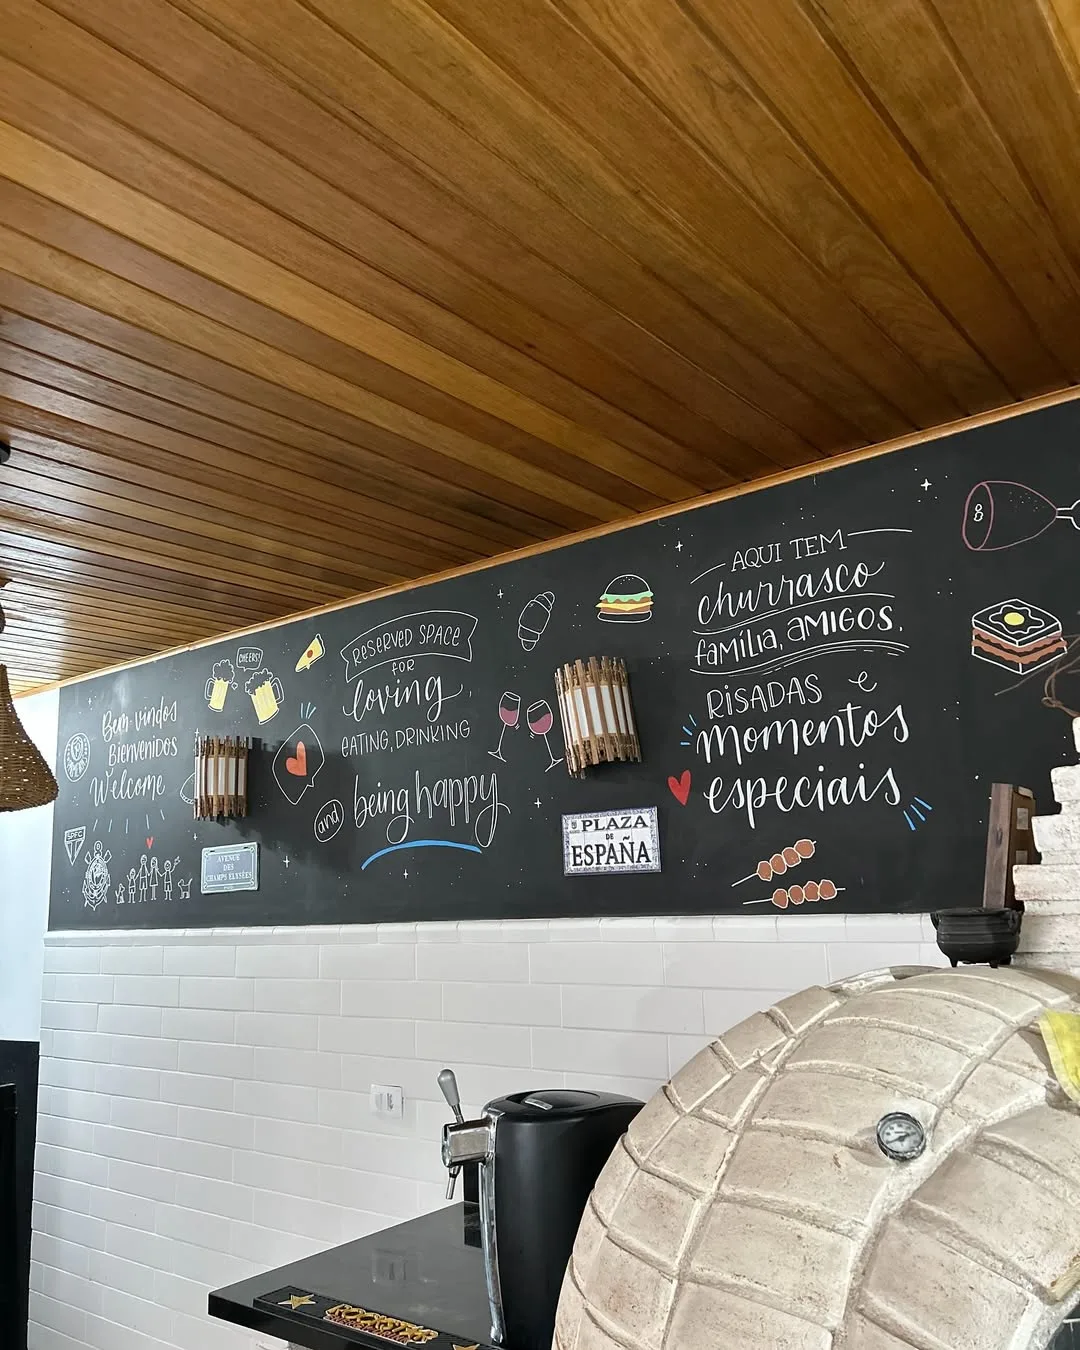 Bem-vindos
Bienvenidos
Welcome
SPFC
CHEERS!
AVENUE
DES
CHAMPS ELYSÉES
RESERVED SPACE
FOR
loving,
EATING, DRINKING
and
being happy
PLAZA
DE
ESPAÑA
AQUI TEM
churrasco
família, AMIGOS,
RISADAS e
momentos
especiais